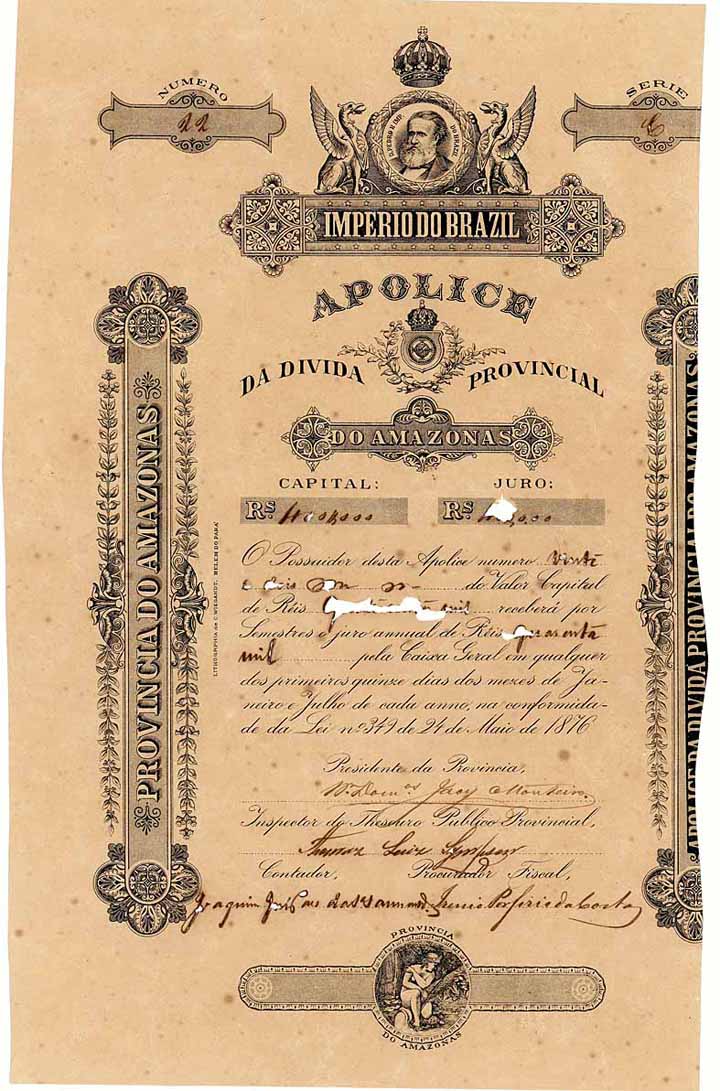 NUMERO
22
SERIE
D. PEDRO II IMP. DO BRAZIL
IMPERIO DO BRAZIL
APOLICE
DA DIVIDA PROVINCIAL
DO AMAZONAS
CAPITAL: JURO:
RS RS
PROVINCIA DO AMAZONAS
LITHOGRAPHIA de C. WIEGANDT. BELEM DO PARÁ
APOLICE DA DIVIDA PROVINCIAL DO AMAZONAS
O Possuidor desta Apolice numero Vinte
e dois do Valor Capital
de Réis mil receberá por
Semestres o juro annual de Réis quarenta
mil pela Caixa Geral em qualquer
dos primeiros quinze dias dos mezes de Ja-
neiro e Julho de cada anno, na conformida-
de da Lei nº 349 de 24 de Maio de 1876
Presidente da Provincia,
Jacy Monteiro
Inspector do Thesouro Publico Provincial,
Thomaz Luiz Sympson
Contador, Procurador Fiscal,
Joaquim Irenio Porfirio da Costa
PROVINCIA
DO AMAZONAS